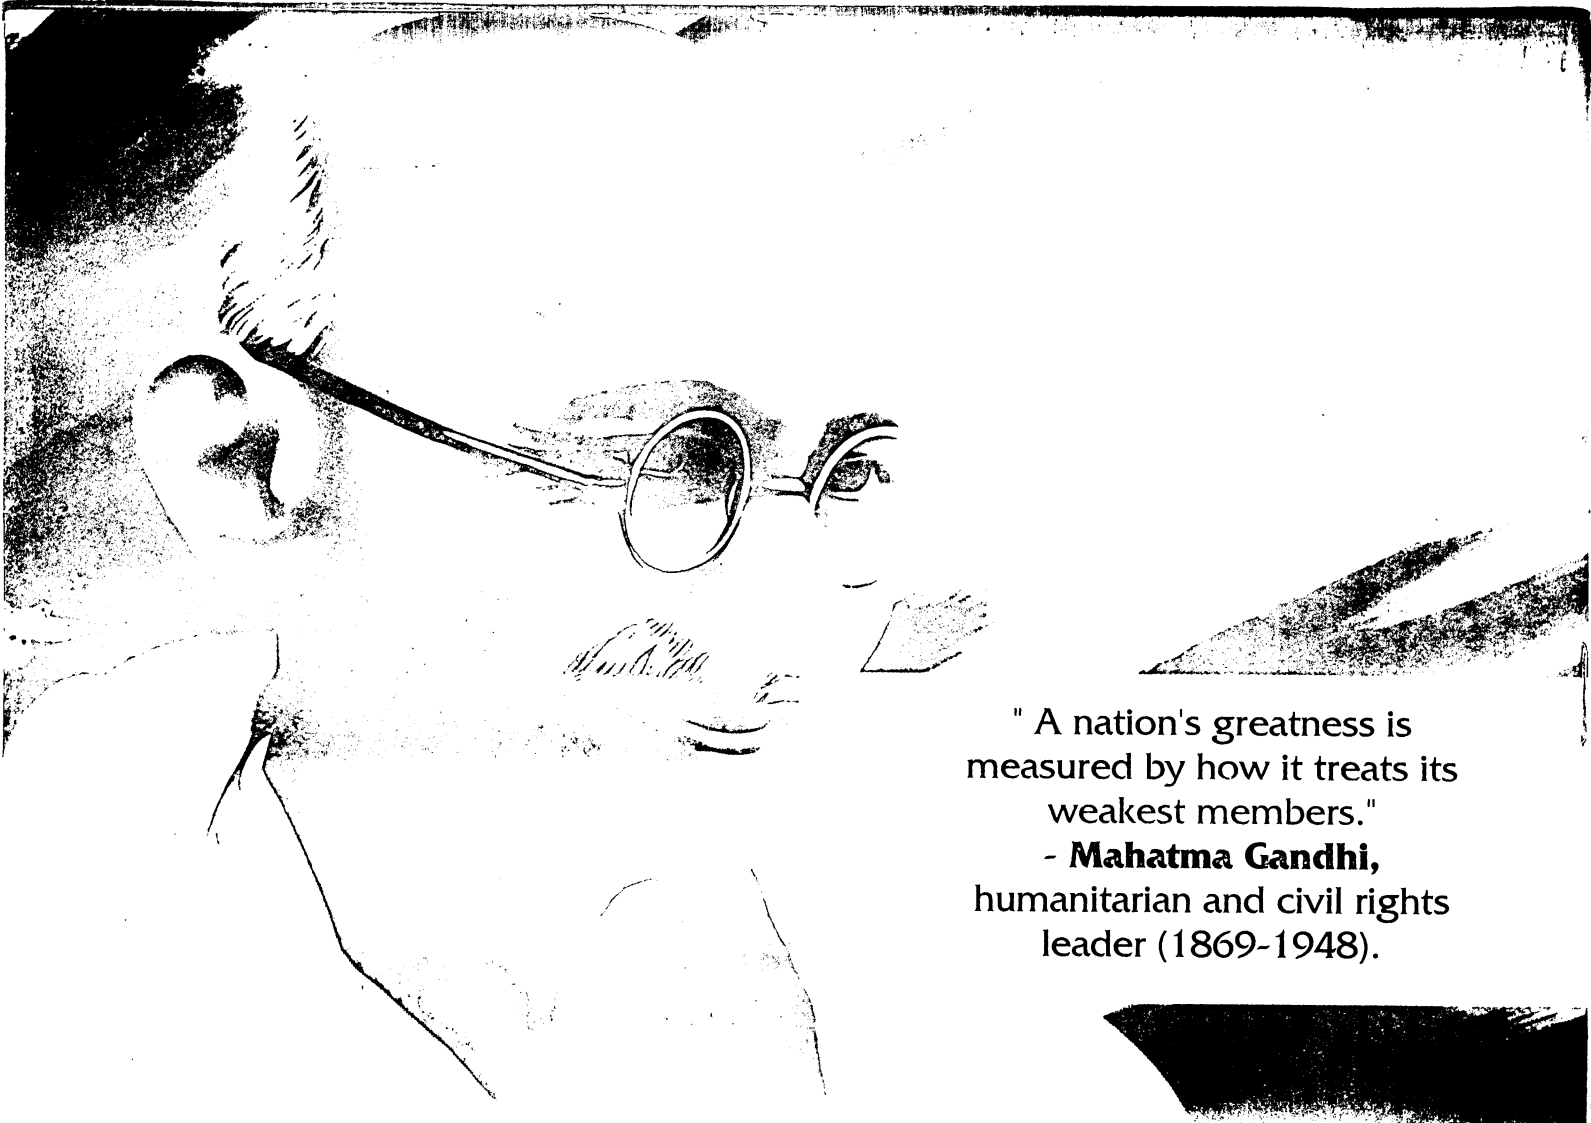 " A nation's greatness is
measured by how it treats its
weakest members."
- Mahatma Gandhi,
humanitarian and civil rights
leader (1869-1948).